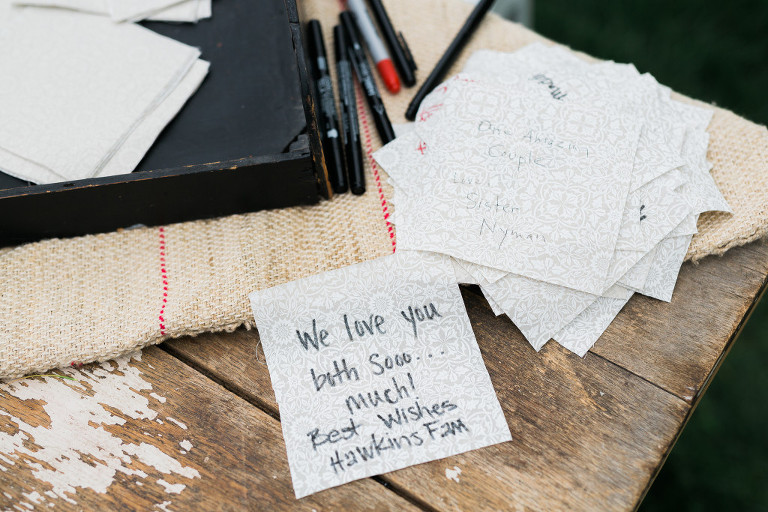 One Amazing
Couple
Love
Sister
Nyman
We love you
both Sooo...
much!
Best Wishes
Hawkins Fam